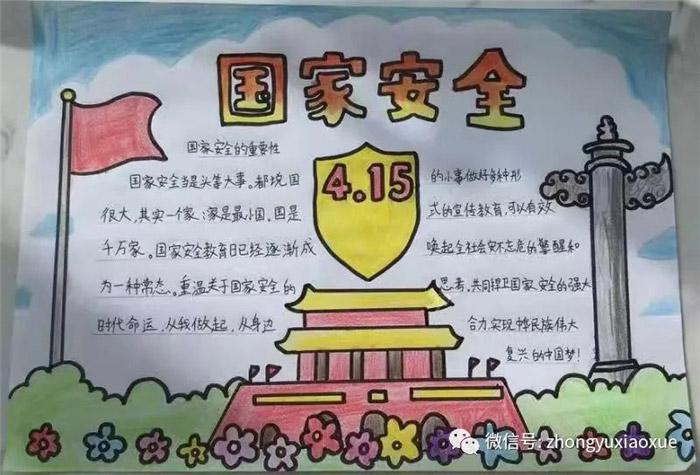 国家安全
4.15
国家安全的重要性
国家安全当是头等大事。都说国
很大,其实一个家;家是最小国。国是
千万家。国家安全教育日已经逐渐成
为一种常态。重温关于国家安全的
时代命运,从我做起,从身边
的小事做好多种形
式的宣传教育,可以有效
唤起全社会安不忘危的警醒和
思考。共同捍卫国家安全的强大
合力,实现中华民族伟大
复兴的中国梦!
微信号: zhongyuxiaoxue